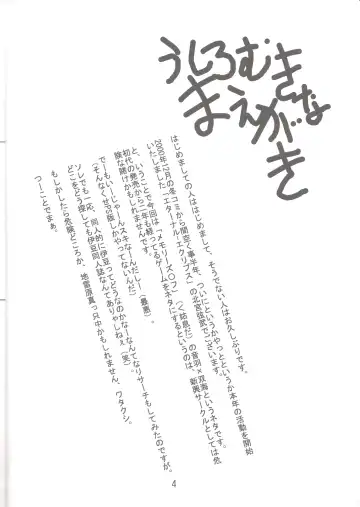 うしろむきな
まえがき
はじめましての人ははじめまして、そうでない人はお久しぶりです。
2000年12月の冬コミから間空く事半年、ついにというかやっとというか本年の活動を開始
いたしました「エターナル・エクリプス」の北宮弦武でございます。
ということで今回は「メモリーズOフ」（ぐ姑息だ）の音羽×双海というネタです。
初代の発売から二年も経ってるゲームをネタにするというのは、新興サークルとしては危
険な賭けかもしれません。
でーもいーじゃーんスキなんだしー（最悪）。
（そんなくせい話しかやってないんだ）
ソレでも一応、同人的に伊豆ってどうなのかな？なんてなリサーチもしてみたのですが。
どこをどう探しても伊豆同人誌なんてありゃしねえ（笑）。
もしかしたら危険どころか、地雷原真っ只中かもしれません、ワタクシ。
つーことでまぁ。
4